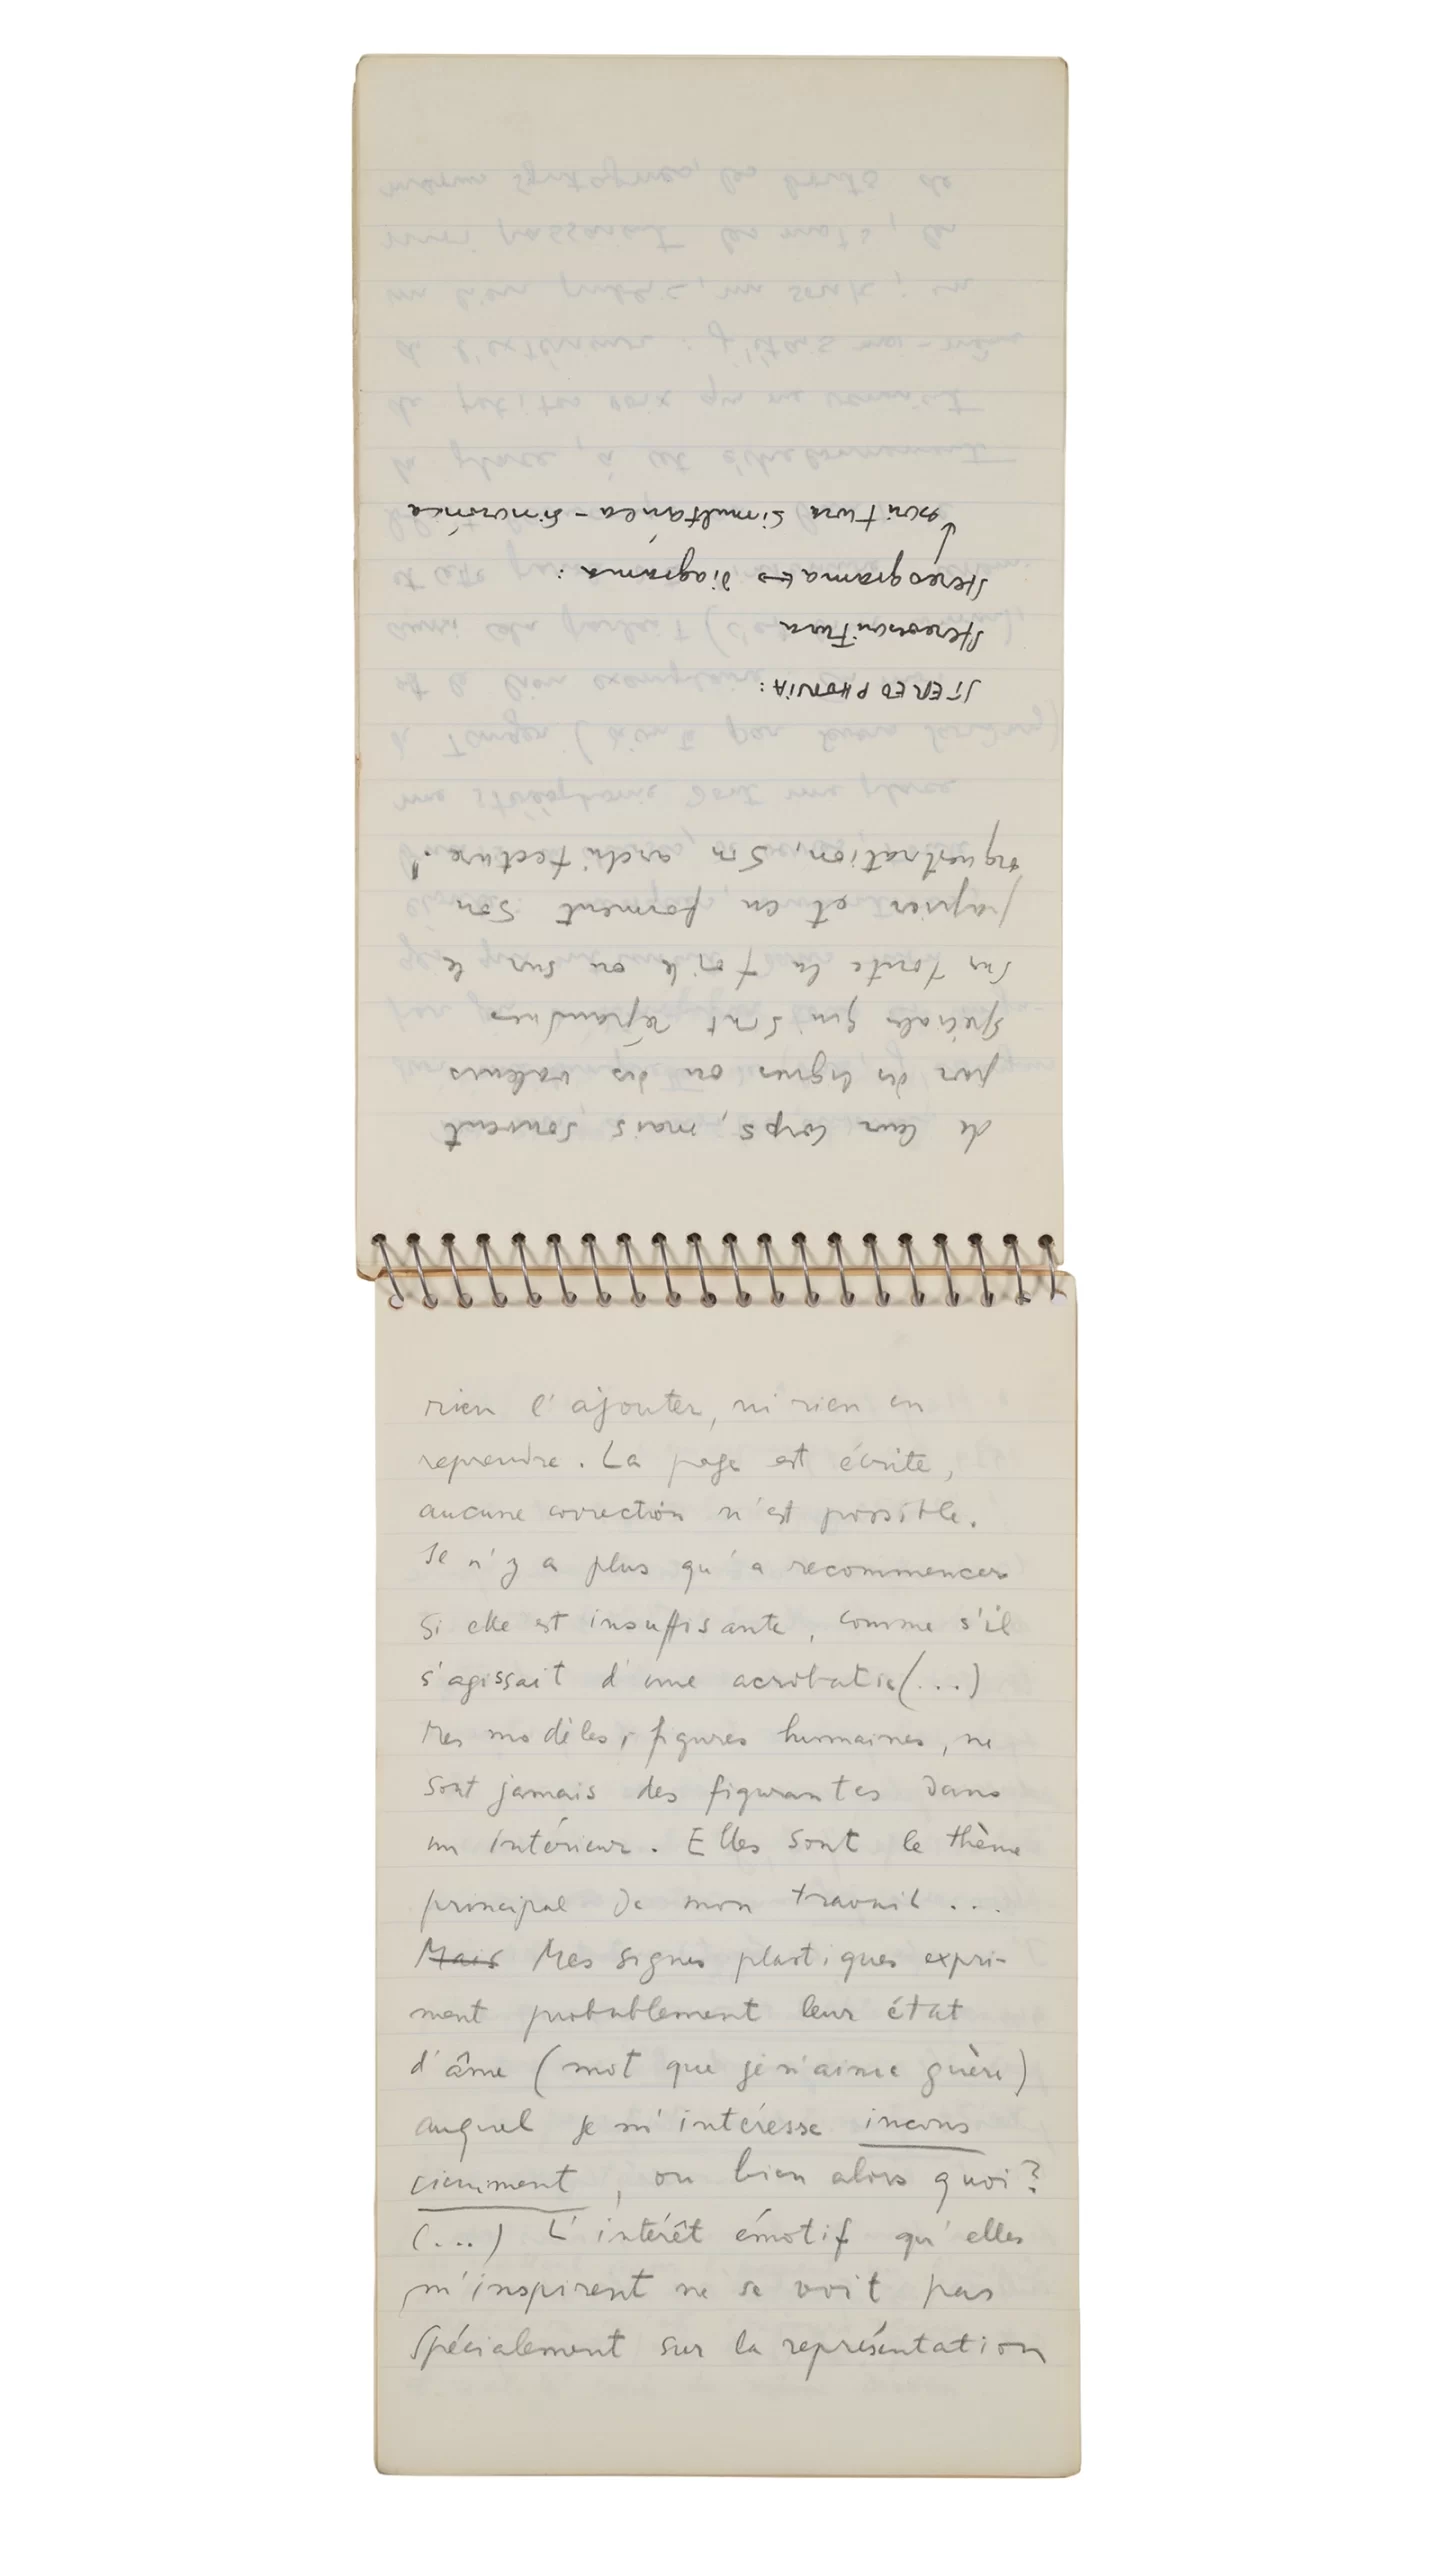 rien l'ajouter, ni rien en
reprendre. La page est écrite,
aucune correction n'est possible.
Il n'y a plus qu'a recommencer
si elle est insuffisante, comme s'il
s'agissait d'une acrobatie (...)
Mes modèles, figures humaines, ne
sont jamais des figurantes dans
un intérieur. Elles sont le thème
principal de mon travail...
Mais Mes signes plastiques expri-
ment probablement leur état
d'âme (mot que je n'aime guère)
auquel je m'intéresse incons
ciemment, ou bien alors quoi?
(...) L'intérêt émotif qu'elles
m'inspirent ne se voit pas
spécialement sur la représentation
de leur corps, mais souvent
par des lignes ou des valeurs
spéciales qui sont répandues
sur toute la toile ou sur le
papier et en forment son
orquestration, son architecture!
STEREOPHONIA:
Stereoscritura
Stereograma ↔ diagrama:
escritura simultánea - sincrónica